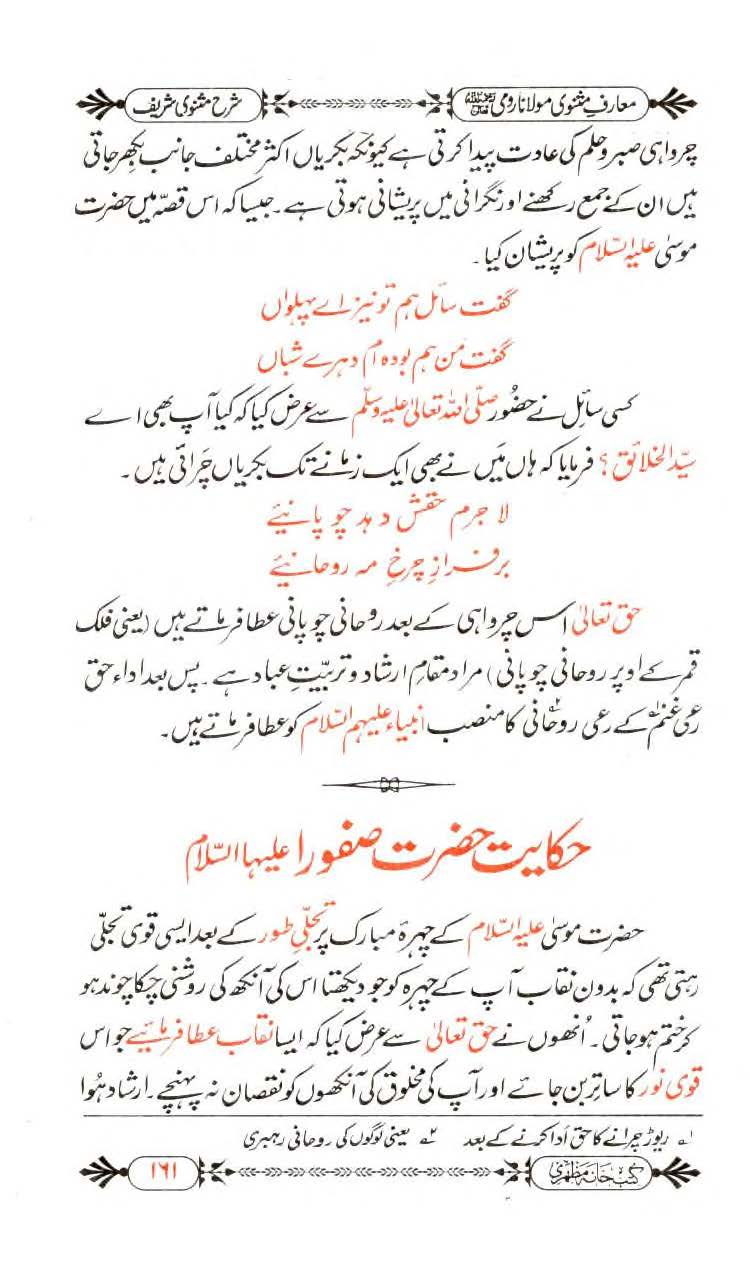 معارفِ مثنوی مولانا رومی رحمۃ اللہ علیہ
شرح مثنوی شریف
چرواہی صبر و حلم کی عادت پیدا کرتی ہے کیونکہ بکریاں اکثر مختلف جانب بکھر جاتی
ہیں ان کے جمع رکھنے اور نگرانی میں پریشانی ہوتی ہے۔ جیسا کہ اس قصّہ میں حضرت
موسیٰ علیہ السّلام کو پریشان کیا۔
گفت سائل ہم تو نیز اے پہلواں
گفت من ہم بودہ ام دہرے شباں
کسی سائل نے حضُور صلّی اللہ تعالیٰ علیہ وسلّم سے عرض کیا کہ کیا آپ بھی اے
سیّد الخلائق؟ فرمایا کہ ہاں مَیں نے بھی ایک زمانے تک بکریاں چَرائی ہیں۔
لا جرم حقش دہد چوپانیئے
بر فرازِ چرخِ مہ روحانیئے
حق تعالیٰ اس چرواہی کے بعد روحانی چوپانی عطا فرماتے ہیں (یعنی فلک
قمر کے اوپر روحانی چوپانی) مراد مقامِ ارشاد و تربیّتِ عباد ہے۔ پس بعد اداء حق
رعی غنم۱؎ کے رعی روحانی۲؎ کا منصب انبیاء علیہم السّلام کو عطا فرماتے ہیں۔
حکایت حضرت صفورا علیہا السّلام
حضرت موسیٰ علیہ السّلام کے چہرۂ مبارک پر تجلّیِ طور کے بعد ایسی قوی تجلّی
رہتی تھی کہ بدون نقاب آپ کے چہرہ کو جو دیکھتا اس کی آنکھ کی روشنی چکا چوند ہو
کر ختم ہوجاتی۔ اُنھوں نے حق تعالیٰ سے عرض کیا کہ ایسا نقاب عطا فرمائیے جو اس
قوی نور کا ساتر بن جائے اور آپ کی مخلوق کی آنکھوں کو نقصان نہ پہنچے۔ ارشاد ہُوا
۱؎ ریوڑ چرانے کا حق اَدا کرنے کے بعد ۲؎ یعنی لوگوں کی روحانی رہبری
کتب خانہ مظہری
۱۶۱